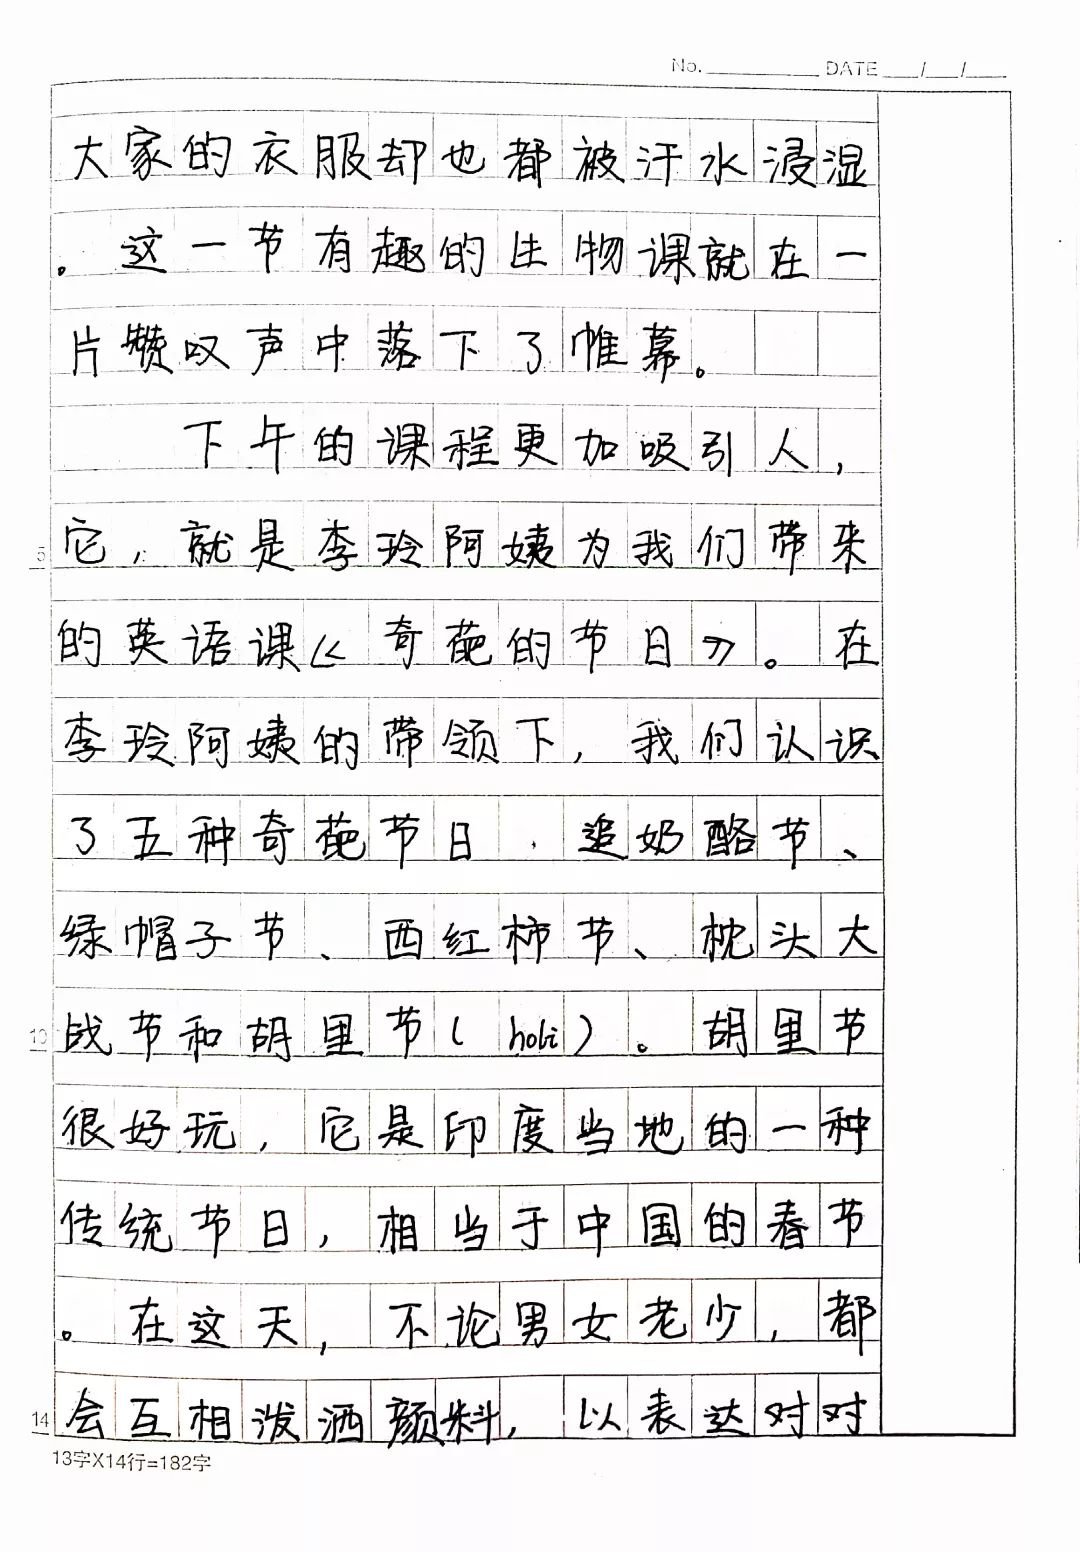 No. DATE / /
大家的衣服却也都被汗水浸湿
。这一节有趣的生物课就在一
片赞叹声中落下了帷幕。
下午的课程更加吸引人，
它，就是李玲阿姨为我们带来
的英语课《奇葩的节日》。在
李玲阿姨的带领下，我们认识
了五种奇葩节日．追奶酪节、
绿帽子节、西红柿节、枕头大
战节和胡里节（holi）。胡里节
很好玩，它是印度当地的一种
传统节日，相当于中国的春节
。在这天，不论男女老少，都
会互相泼洒颜料，以表达对对
5
10
14
13字X14行=182字